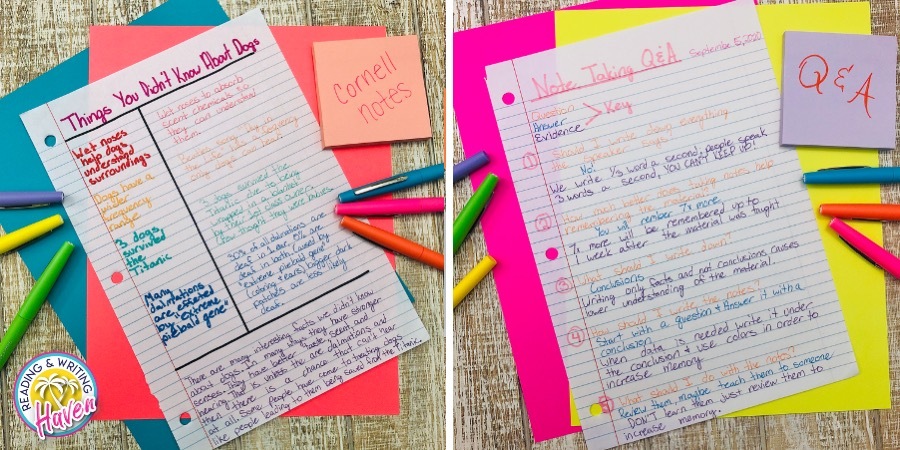 Things You Didn't Know About Dogs
Wet noses
help dogs
understand
surroundings
Dogs have a
frequency
range
3 dogs
survived
the
Titanic
Many
dalmations
are effected
by "Extreme
piebald gene"
Wet noses to absorb
scent chemicals so
they can understand
them.
3 dogs survived the
Titanic due to being
wrapped in a blanket
thought they were babies.
30% of all dalmations are
deaf in 1 ear, 5% are
deaf in both (caused by
"extreme piebald gene"
patches are less likely
There are many interesting facts we didn't know
about dogs. It's many that they have stronger
senses. They have better
hearing. This is unless the are dalmations and
then there is a chance that can't hear
at all. Some people have come to treating dogs
like people leading to them being saved from the Titanic.
Cornell
notes
READING & WRITING
Haven
Note Taking Q&A
September 15, 2020
Question
Answer
Evidence
> Key
1 Should I write down everything
the teacher says
No!
We write 1/3 word a second, people speak
3 words a second, YOU CAN'T KEEP UP!
2 How much better does taking notes help
remembering the material
You will rember 7x more
7x more will be remembered up to
1 week after the material was taught
3 What should I write down?
Conclusions
Writing only facts and not conclusions causes
lower understanding of the material
4 How should I write the notes?
Start with a question & Answer it with a
conclusion
When data is needed write it under
the conclusion & use colors in order to
increase memory
5 What should I do with the notes?
Review them, maybe teach them to someone
DON'T learn them just review them to
increase memory.
Q & A